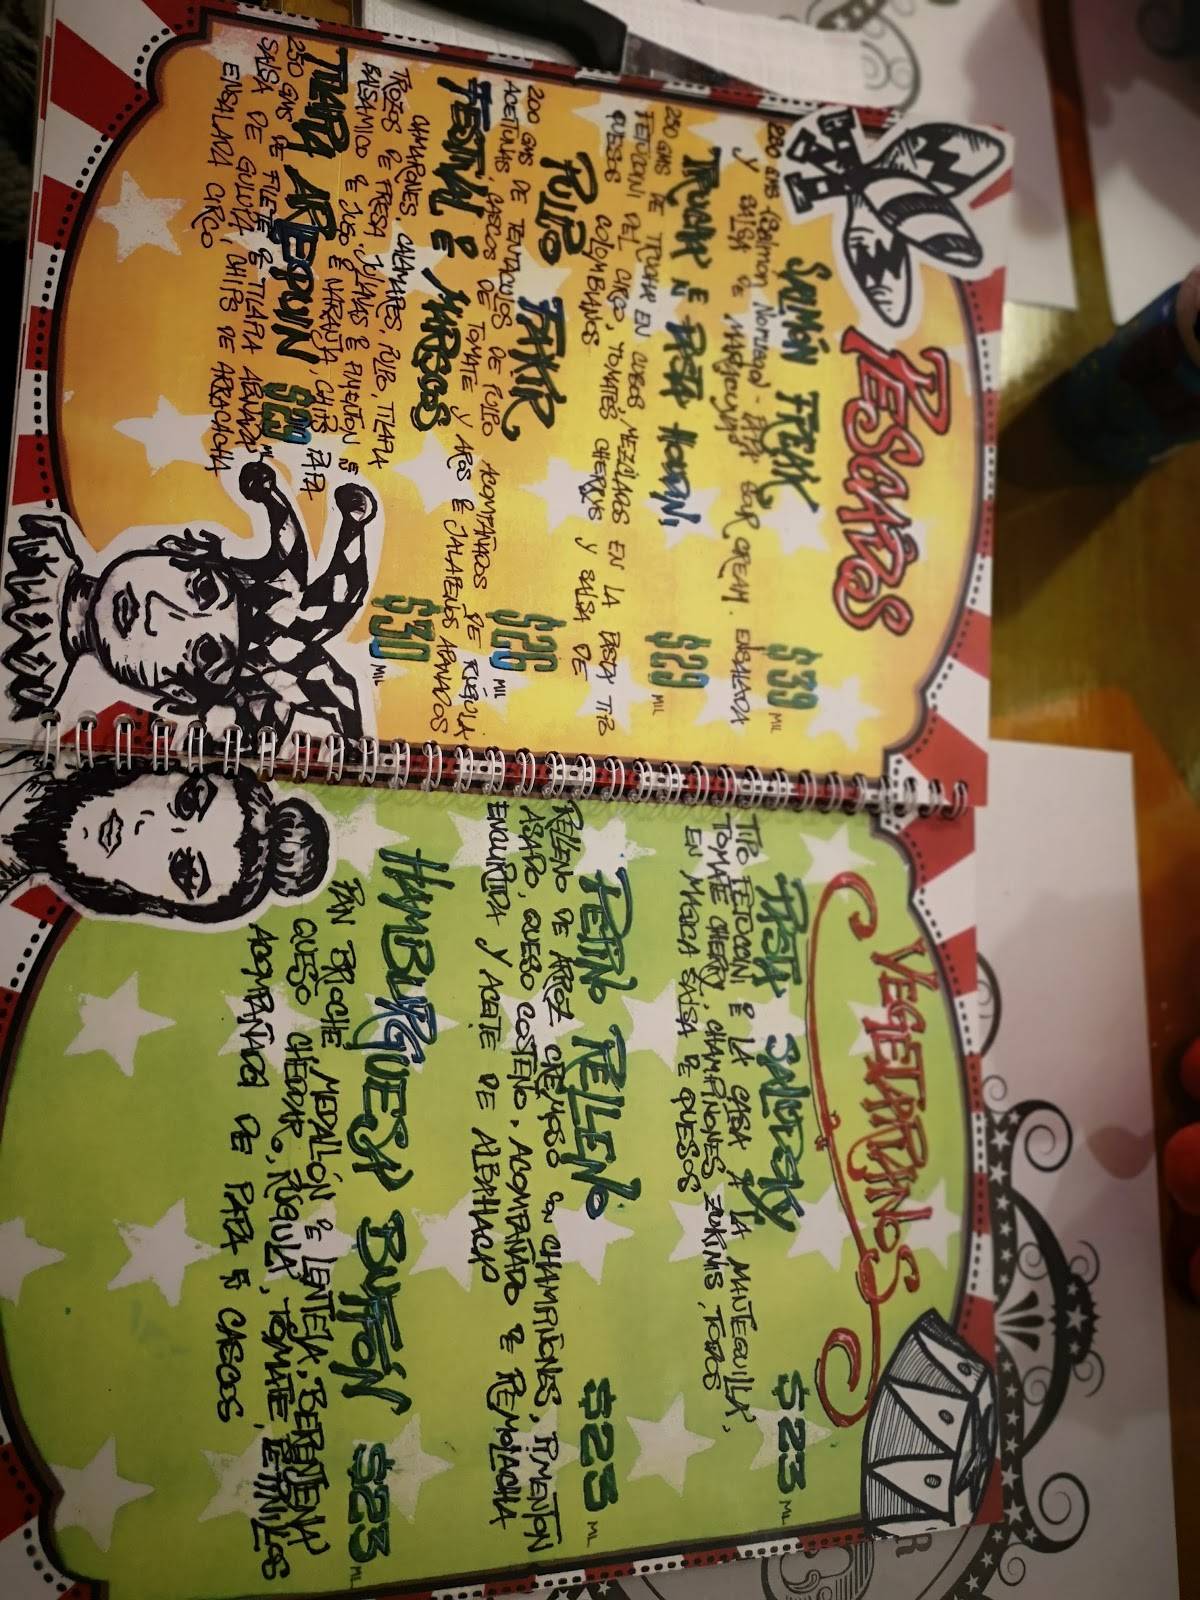 PESCADOS
SALMÓN FREAK $39 MIL
200 GMS SALMON NORUEGO SOUR CREAM. ENSALADA
Y SALSA DE MARACUYÁ
TRUCHA E PASTA HOUDINI $29 MIL
250 GMS DE TRUCHA EN CUBOS, MEZCLADOS EN LA PASTA TIPO
FETUCCINI DEL CIRCO, TOMATES CHERRYS Y SALSA DE
QUESOS COLOMBIANOS
PULPO FAKIR $26 MIL
200 GMS DE TENTACULOS DE PULPO ACOMPAÑADOS DE RÚGULA
ACEITUNAS, CASCOS DE TOMATE Y AROS E JALAPEÑOS APANADOS
FESTIVAL E MARISCOS $30 MIL
CAMARONES, CALAMARES, PULPO, TILAPIA
TROZOS E FRESA, JULIANAS E PIMENTÓN E
BALSAMICO E JUGO E NARANJA, CHIPS PAPA
TILAPIA ARLEQUIN $29 MIL
250 GMS DE FILETE E TILAPIA APANADA
SALSA DE GULUPA, CHIPS DE ARRACACHA
ENSALADA CIRCO
VEGETARIANOS
PASTA SALVDORY $23 MIL
TIPO FETUCCINI E LA CASA A LA MANTEQUILLA,
TOMATE CHERRY, CHAMPIÑONES, ZUKINIS, TODOS
EN MAGICA SALSA E QUESOS
PEPINO RELLENO $23 MIL
RELLENO DE ARROZ CREMOSO CON CHAMPIÑONES, PIMENTÓN
ASADO, QUESO COSTEÑO, ACOMPAÑADO E REMOLACHA
ENCURTIDA Y ACEITE DE ALBAHACA
HAMBURGUESA BUFFÓN $23 MIL
PAN BRIOCHE, MEDALLÓN E LENTEJA, BERENJENA
QUESO CHEDDAR, RUGULA, TOMATE, PEPINILLOS
ACOMPAÑADA DE PAPA E CASCOS